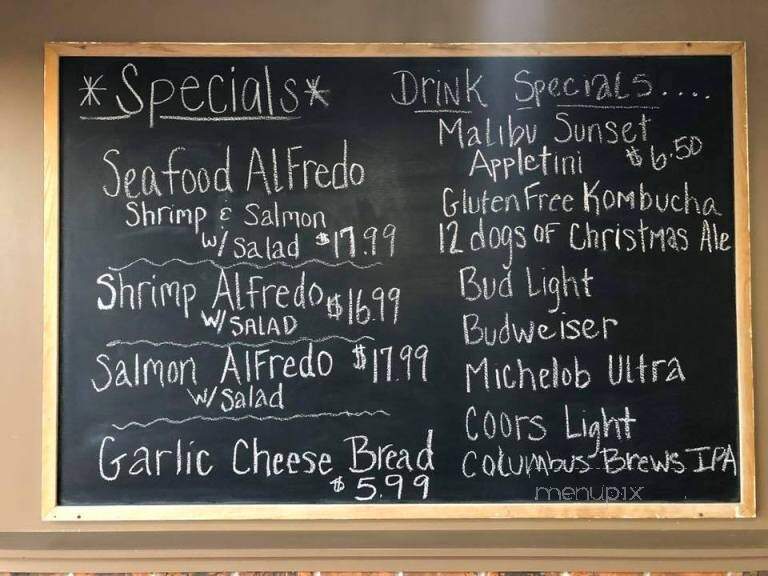 *Specials*
Seafood Alfredo
Shrimp & Salmon
w/ Salad $17.99
Shrimp Alfredo $16.99
w/ SALAD
Salmon Alfredo $17.99
w/ Salad
Garlic Cheese Bread
$5.99
Drink Specials....
Malibu Sunset
Appletini $6.50
Gluten Free Kombucha
12 dogs of Christmas Ale
Bud Light
Budweiser
Michelob Ultra
Coors Light
Columbus Brews IPA
menupix